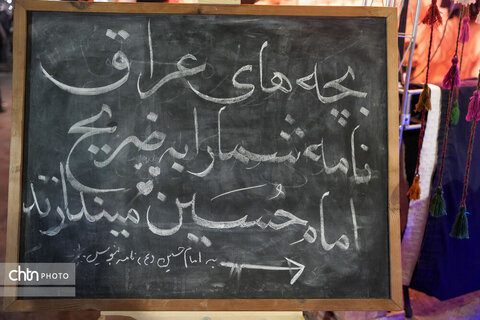 بچه های عراق
نامه شما را به ضریح
امام حُسین میندازند
به امام حسین (ع) نامه بنویسین
chtn PHOTO